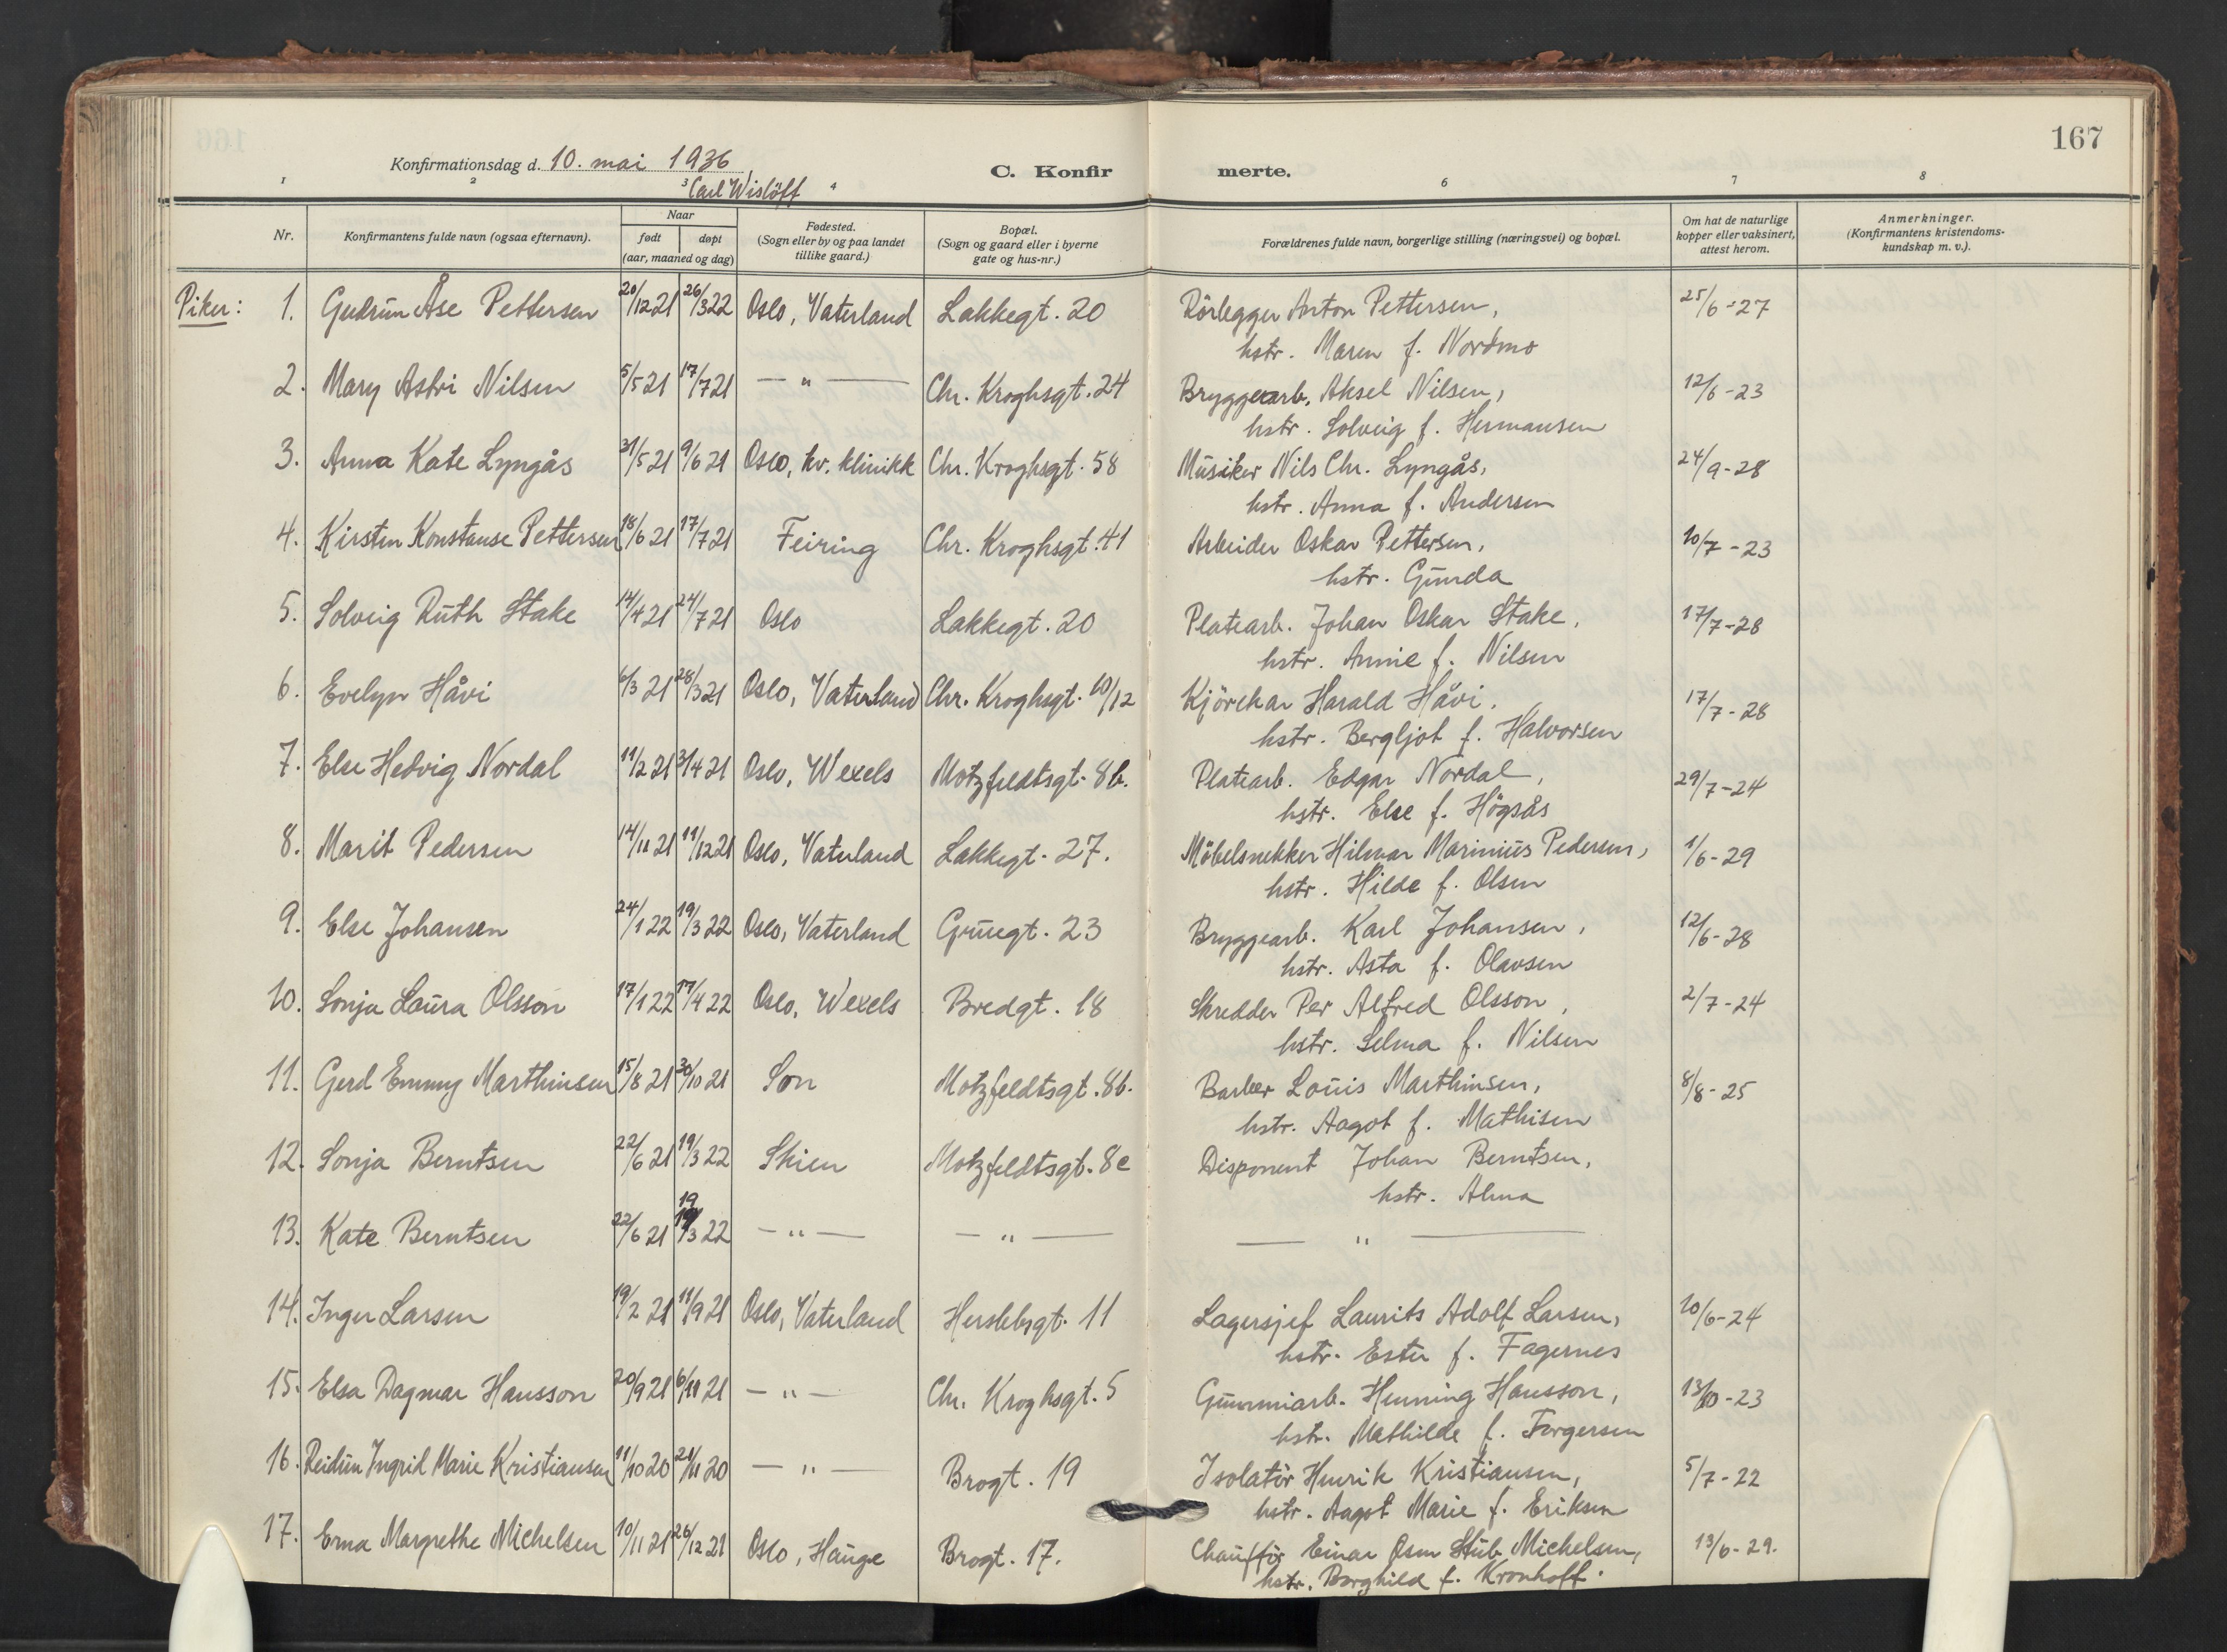 167
Konfirmationsdag d. 10. mai 1936
Carl Wislöff
C. Konfirmerte.
1 2 3 4 6 7 8
Nr. Konfirmantens fulde navn (ogsaa efternavn). Naar født døpt (aar, maaned og dag) Fødested. (Sogn eller by og paa landet tillike gaard.) Bopæl. (Sogn og gaard eller i byerne gate og hus-nr.) Forældrenes fulde navn, borgerlige stilling (næringsvei) og bopæl. Om hat de naturlige kopper eller vaksinert, attest herom. Anmerkninger. (Konfirmantens kristendomskundskap m. v.).
Piker: 1. Gudrun Åse Pettersen 20/12 21 26/3 22 Oslo, Vaterland Lakkegt. 20 Rörlegger Anton Pettersen, 25/6-27
hstr. Maren f. Nordmo
2. Mary Astri Nilsen 5/5 21 17/7 21 — " — Chr. Kroghsgt. 24 Bryggearb. Aksel Nilsen, 12/6-23
hstr. Solveig f. Hermansen
3. Anna Kate Lyngås 31/5 21 9/6 21 Oslo, kv. klinikk Chr. Kroghsgt. 58 Musiker Nils Chr. Lyngås, 24/9-28
hstr. Anna f. Andersen
4. Kirsten Konstanse Pettersen 18/6 21 17/7 21 Feiring Chr. Kroghsgt. 41 Arbeider Oskar Pettersen, 10/7-23
hstr. Gunda
5. Solveig Ruth Stake 14/4 21 24/7 21 Oslo Lakkegt. 20 Platearb. Johan Oskar Stake, 17/7-28
hstr. Annie f. Nilsen
6. Evelyn Håvi 6/3 21 28/3 21 Oslo, Vaterland Chr. Kroghsgt. 10/12 Kjörekar Harald Håvi, 17/7-28
hstr. Bergljot f. Halvorsen
7. Else Hedvig Nordal 11/2 21 3/4 21 Oslo, Wexels Motzfeldtsgt. 8b. Platearb. Edgar Nordal, 29/7-24
hstr. Else f. Högsås
8. Marit Pedersen 14/11 21 11/12 21 Oslo, Vaterland Lakkegt. 27. Möbelsnekker Hilmar Marinius Pedersen, 1/6-29
hstr. Hilde f. Olsen
9. Else Johansen 24/1 22 19/3 22 Oslo, Vaterland Grünegt. 23 Bryggearb. Karl Johansen, 12/6-28
hstr. Asta f. Olavsen
10. Sonja Laura Olsson 17/1 22 17/4 22 Oslo, Wexels Bredgt. 18 Skredder Per Alfred Olsson, 2/7-24
hstr. Selma f. Nilsen
11. Gerd Emmy Marthinsen 15/8 21 30/10 21 Son Motzfeldtsgt. 8b. Barber Louis Marthinsen, 8/8-25
hstr. Aagot f. Mathisen
12. Sonja Berntsen 22/6 21 19/3 22 Skien Motzfeldtsgt. 8c Disponent Johan Berntsen,
hstr. Alma
19
13. Kate Berntsen 22/6 21 19/3 22 — " — — " — — " —
14. Inger Larsen 19/2 21 11/9 21 Oslo, Vaterland Herslebsgt. 11 Lagersjef Laurits Adolf Larsen, 10/6-24
hstr. Ester f. Fagernes
15. Elsa Dagmar Hansson 20/9 21 6/11 21 — " — Chr. Kroghsgt. 5 Gummiarb. Henning Hansson, 13/10-23
hstr. Mathilde f. Torgersen
16. Reidun Ingrid Marie Kristiansen 11/10 20 21/11 20 — " — Brogt. 19 Isolatör Henrik Kristiansen, 5/7-22
hstr. Aagot Marie f. Eriksen
17. Erna Margrethe Michelsen 10/11 21 26/12 21 Oslo, Hauge Brogt. 17. Chaufför Einar Osm Stub Michelsen, 13/6-29.
hstr. Borghild f. Kronhoff.